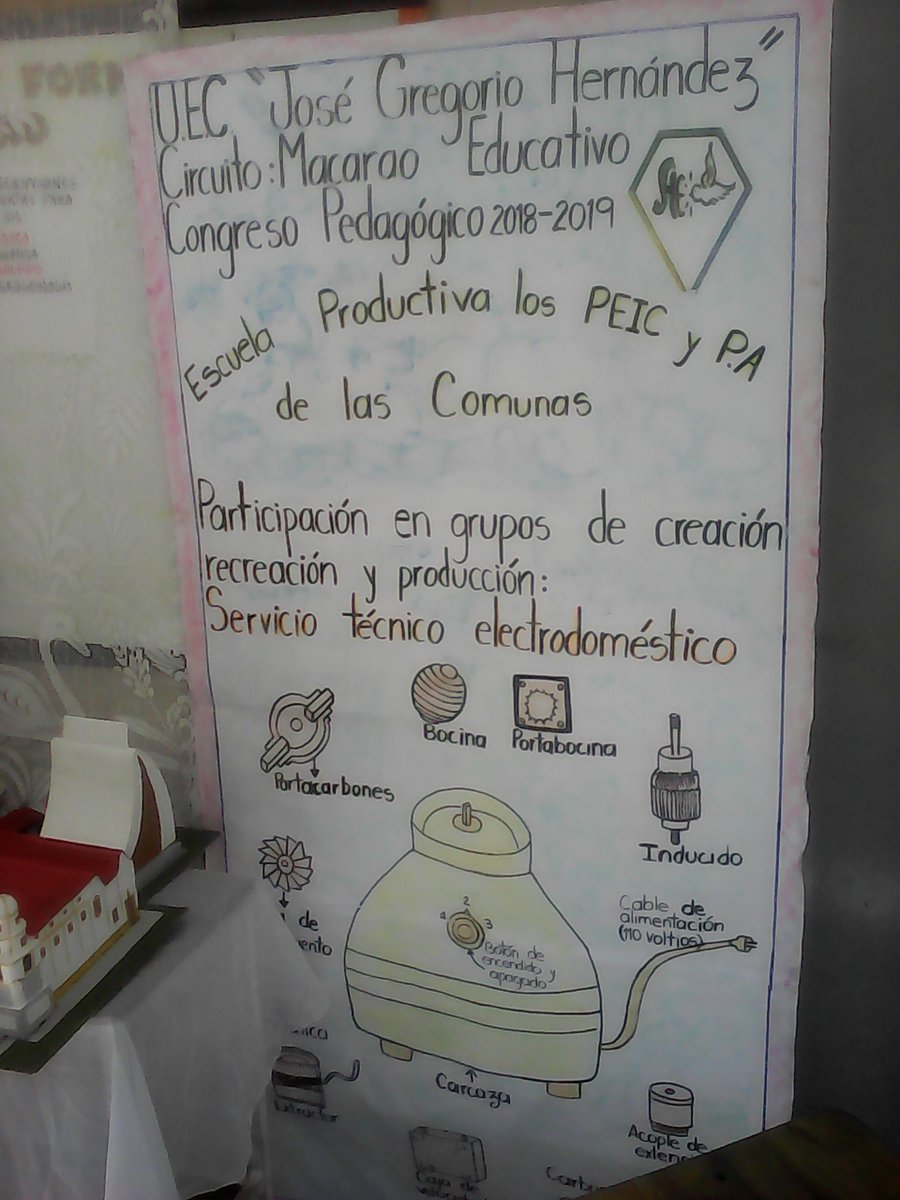 U.E.C. "José Gregorio Hernández"
Circuito: Macarao Educativo
Congreso Pedagógico 2018-2019
Escuela Productiva los PEIC y P.A
de las Comunas
Participación en grupos de creación
recreación y producción:
Servicio técnico electrodoméstico
Bocina
Portabocina
Portacarbones
Inducido
de
Cable de
alimentación
(110 voltios)
1 2 3
Botón de
encendido y
apagado
Carcaza
Acople de
Caja de
FORM